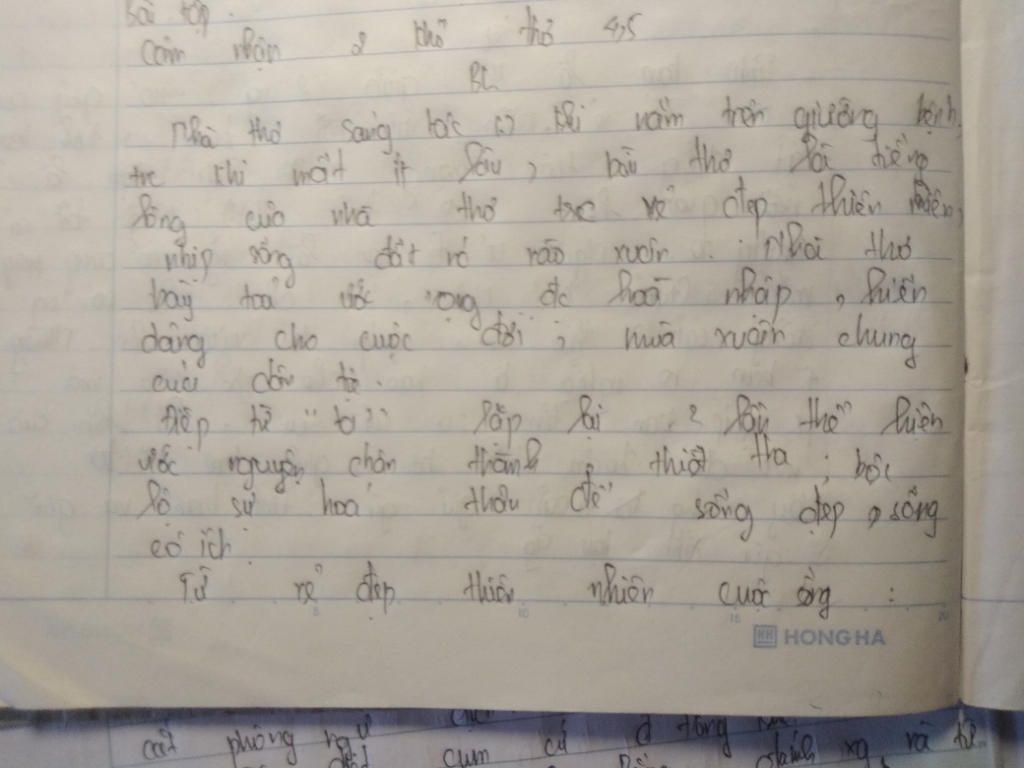 Bài tập.
Cảm nhận 2 khổ thơ 4,5
BL
Nhà thơ sang tác khi nằm trên giường bệnh
trc khi mất ít lâu, bài thơ là tiếng
lòng của nhà thơ trc vẻ đẹp thiên nhiên,
nhịp sống đất nc vào xuân. Nhà thơ
bày toả ước vọng đc hoà nhập, hiến
dâng cho cuộc đời; mùa xuân chung
của dân tộ.
điệp từ "ta" lặp lại 2 lần thể hiện
ước nguyện chân thành, thiết tha; bộc
lộ sự hoá thâu để sống đẹp, sống
có ích
Từ vẻ đẹp thiên nhiên cuộc ống :
5 10 15 20
HH HONG HA
cất phòng ngự cum cứ đ
đánh xg và